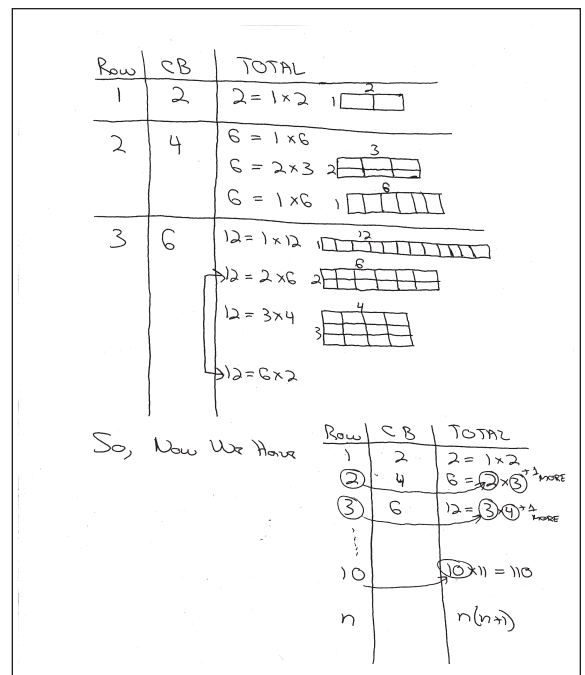 Row CB TOTAL
1 2 2 = 1 x 2
2
1
2 4 6 = 1 x 6
6 = 2 x 3
3
2
6 = 1 x 6
6
1
3 6 12 = 1 x 12
12
1
12 = 2 x 6
6
2
12 = 3 x 4
4
3
12 = 6 x 2
So, Now We Have
Row CB TOTAL
1 2 2 = 1 x 2
2 4 6 = 2 x 3 +1 MORE
3 6 12 = 3 x 4 +1 MORE
10 10 x 11 = 110
n n(n+1)